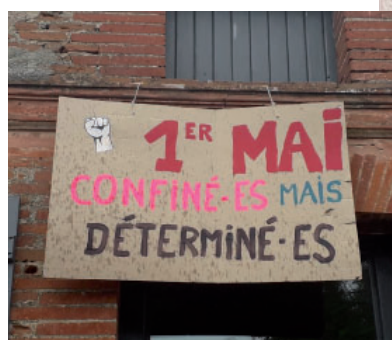 1ER MAI
CONFINÉ-ES MAIS
DÉTERMINÉ·ES